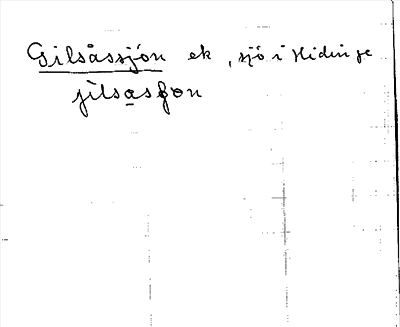 Gilsåssjön ek, sjö i Hidinge
jilsasʃon